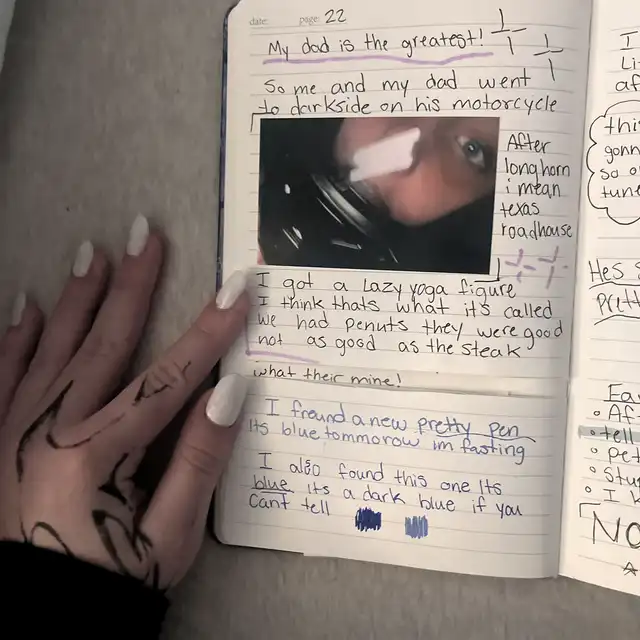 date: page: 22
My dad is the greatest!
So me and my dad went
to darkside on his motorcycle
After
longhorn
i mean
texas
roadhouse
I got a Lazy yoga figure
I think thats what it's called
we had penuts they were good
not as good as the steak
what their mine!
I freund a new pretty pen
Its blue tommorow im fasting
I also found this one Its
blue its a dark blue if you
cant tell
I
Li
af
thi
gonn
so o
tun
He's s
Pret
Fa
• Af
• tell
• pet
• Stu
• I
No